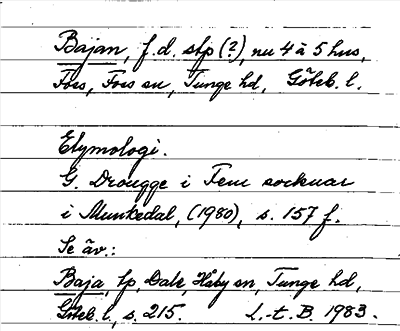 Bajan, f.d. stp (?), nu 4 à 5 hus,
Foss, Foss sn, Tunge hd, Göteb. l.
Etymologi.
G. Drougge i Fem socknar
i Munkedal, (1980), s. 157 f.
Se äv.:
Baja, lp, Dale, Håby sn, Tunge hd,
Göteb. l, s. 215. L.-t. B. 1983.